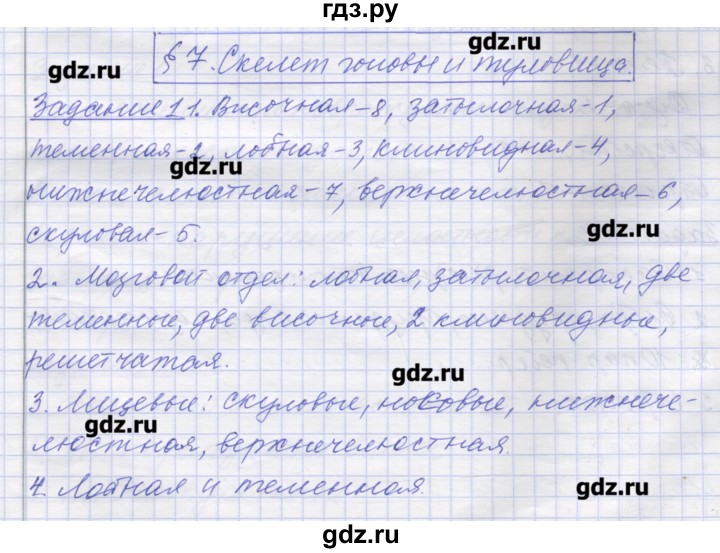 гдз.ру
gdz.ru
§ 7. Скелет головы и туловища.
gdz.ru
Задание 1 1. Височная-8, затылочная-1,
теменная-2, лобная-3, клиновидная-4,
gdz.ru
нижнечелюстная-7, верхнечелюстная-6,
скуловая-5.
gdz.ru
2. Мозговой отдел: лобная, затылочная, две
теменные, две височные, 2 клиновидные,
решетчатая.
gdz.ru
3. Лицевые: скуловые, носовые, нижнече-
люстная, верхнечелюстная.
gdz.ru
4. Лобная и теменная.
gdz.ru
gdz.ru